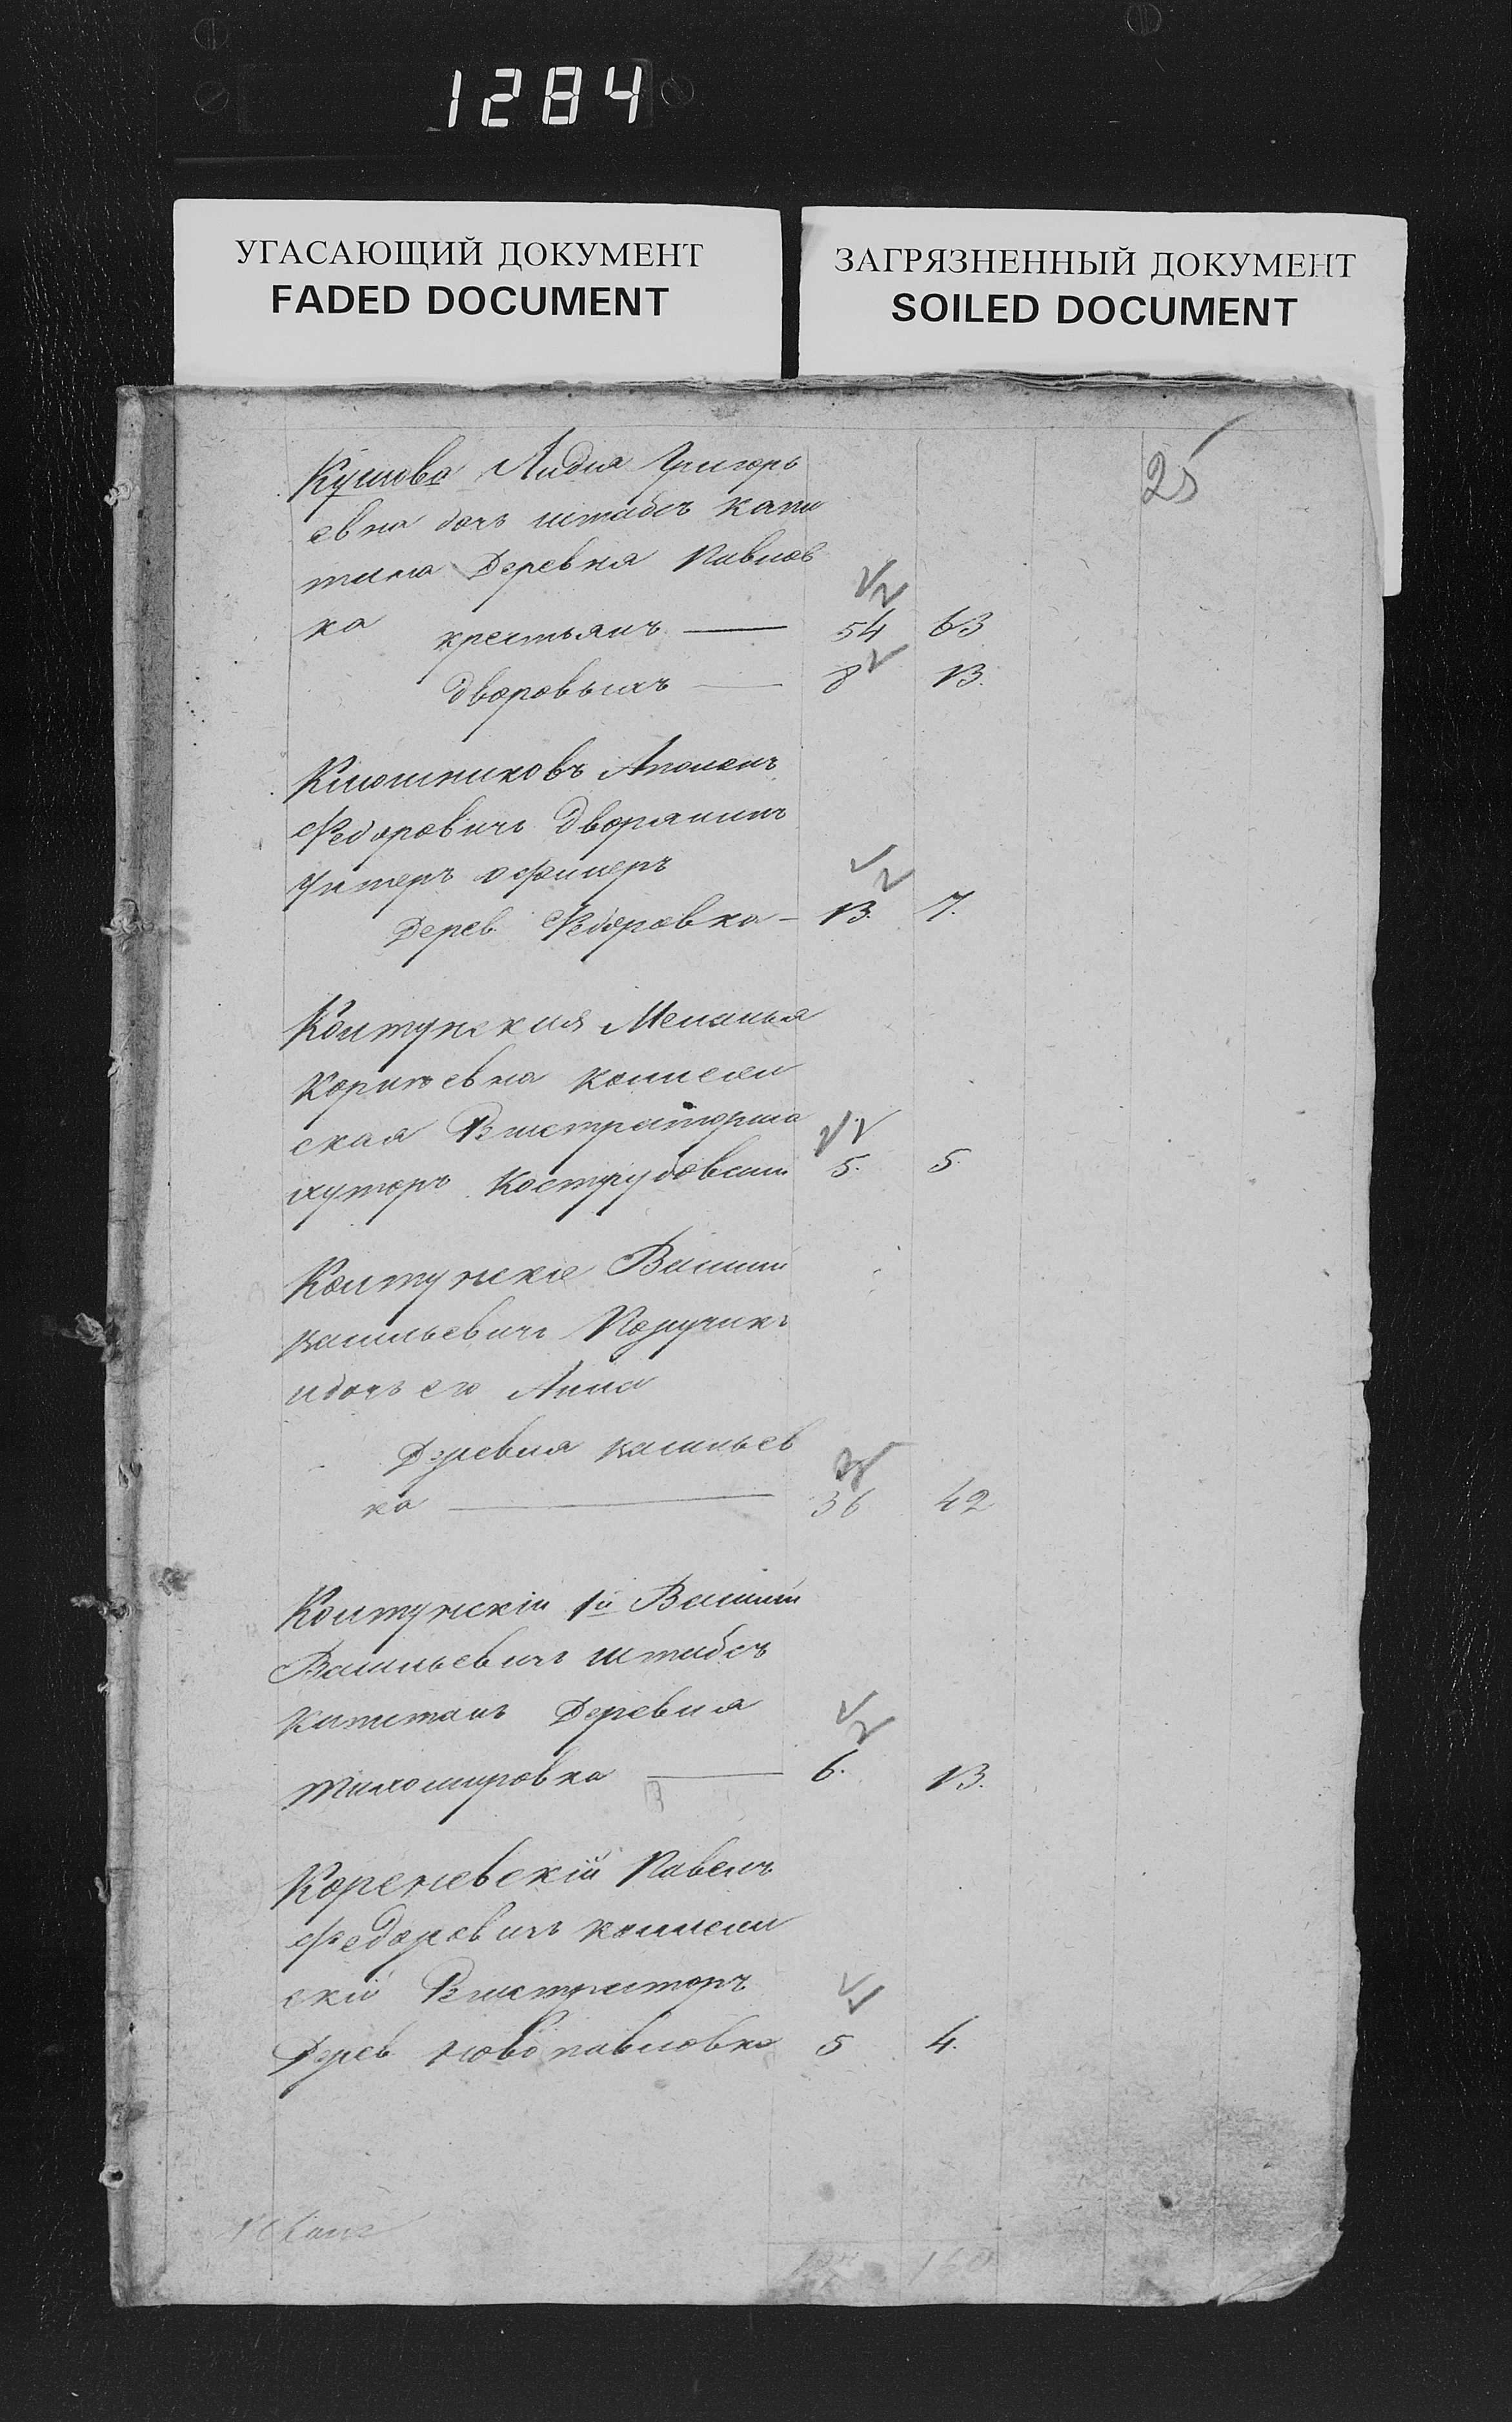 1284
УГАСАЮЩИЙ ДОКУМЕНТ
FADED DOCUMENT
ЗАГРЯЗНЕННЫЙ ДОКУМЕНТ
SOILED DOCUMENT
25
Лидия Григорь
евна дочь штабсъ капи
тана Деревня Павлов
ка крестьянъ — 54 63
дворовыхъ — 8 13.
Клюшниковъ Аполонъ
Федоровичъ дворянинъ
Унтеръ офицеръ
Дерев. Федоровка — 13. 7.
Меланья
колежи
ская Регистраторша
хуторъ 5. 5.
Василий
Васильевичъ Поручикъ
и дочь его Анна
Деревня Васильев
ка — 36 42
1й Василий
Васильевичъ штабсъ
Капитанъ Деревня
Тихомировка — 6. 13.
Кореневскій Павелъ
Федоровичъ колежи
скій Регистраторъ
Дерев Новопавловка 5 4.